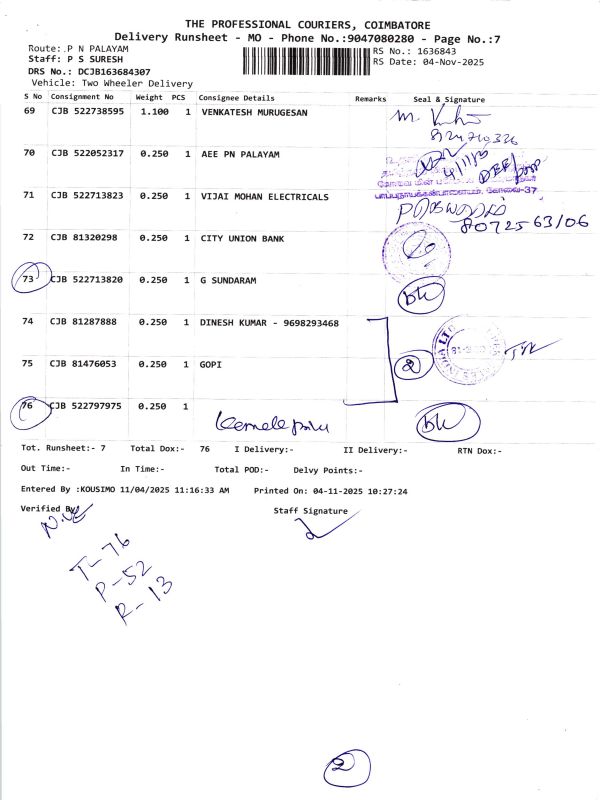 THE PROFESSIONAL COURIERS, COIMBATORE
Delivery Runsheet - MO - Phone No.:9047080280 - Page No.:7
Route: P N PALAYAM
RS No.: 1636843
Staff: P S SURESH
RS Date: 04-Nov-2025
DRS No.: DCJB163684307
Vehicle: Two Wheeler Delivery
S No Consignment No Weight PCS Consignee Details Remarks Seal & Signature
69 CJB 522738595 1.100 1 VENKATESH MURUGESAN
70 CJB 522052317 0.250 1 AEE PN PALAYAM
4/11/25
கோவை-37
71 CJB 522713823 0.250 1 VIJAI MOHAN ELECTRICALS
80725 63106
72 CJB 81320298 1 0.250 1 CITY UNION BANK
73 CJB 522713820 0.250 1 G SUNDARAM
74 CJB 81287888 0.250 1 DINESH KUMAR - 9698293468
75 CJB 81476053 0.250 1 GOPI
2
76 CJB 522797975 0.250 1
Tot. Runsheet:- 7 Total Dox:- 76 I Delivery:- II Delivery:- RTN Dox:-
Out Time:- In Time:- Total POD:- Delvy Points:-
Entered By :KOUSIMO 11/04/2025 11:16:33 AM Printed On: 04-11-2025 10:27:24
Verified By
Staff Signature
T- 76
P- 52
R- 13
2